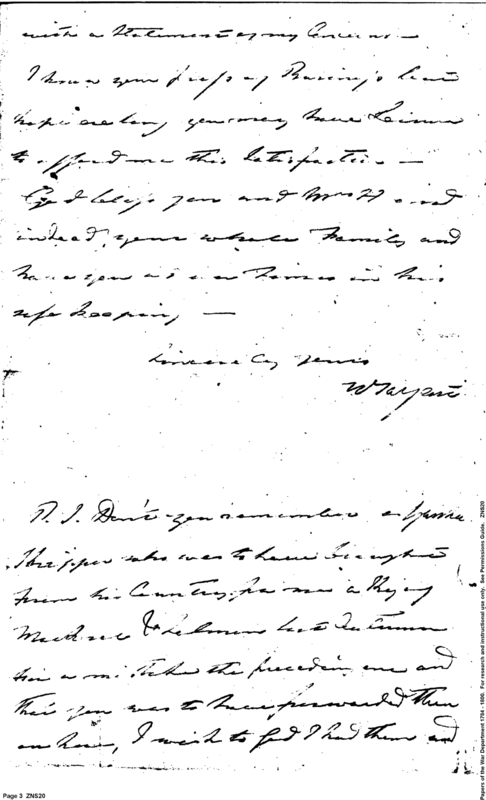 with a Statement of my Concerns —
I know your press of Business but
hope ere long you may have Leisure
to afford me this Satisfaction —
God bless you and Mrs H and
indeed your whole Family and
have you at all times in his
safe keeping —
Sincerely yours
P. S. Don't you remember a
Skipper who was to have brought
from his Country for me a Keg of
Mackrel & Salmon last Autumn
the preceding one and
that you was to have forwarded them
on here, I wish to God I had them and
Page 3 ZNS20
Papers of the War Department 1784 - 1800. For research and instructional use only. See Permissions Guide. ZNS20